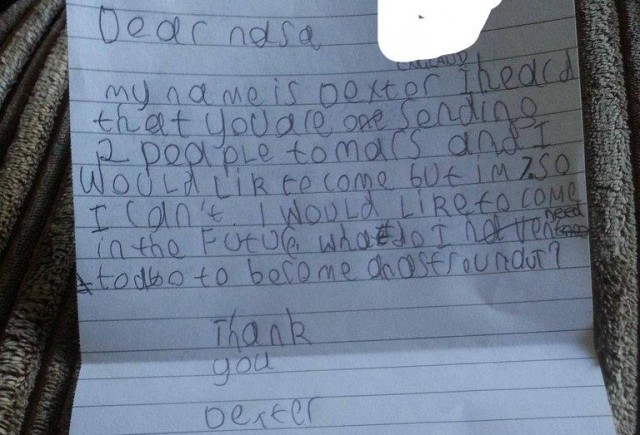 Dear nasa
ENGLAUD
my name is Dexter I heard
that you are sending
2 peaple to mars and I
WoULd Lik to come but im 7. So
I can't. I WoULd Like to come
in the FUtUre. what do I need
to do to become anastrounaut?
Thank
you
Dexter